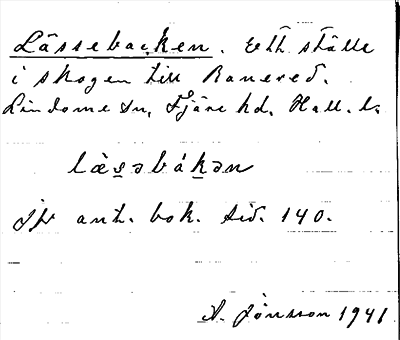 Lässebacken. Ett ställe
i skogen till Ranered.
Lindome sn, Fjäre hd, Hall. l.
læ̀səbákən
ant. bok. sid. 140.
A. Jönsson 1941